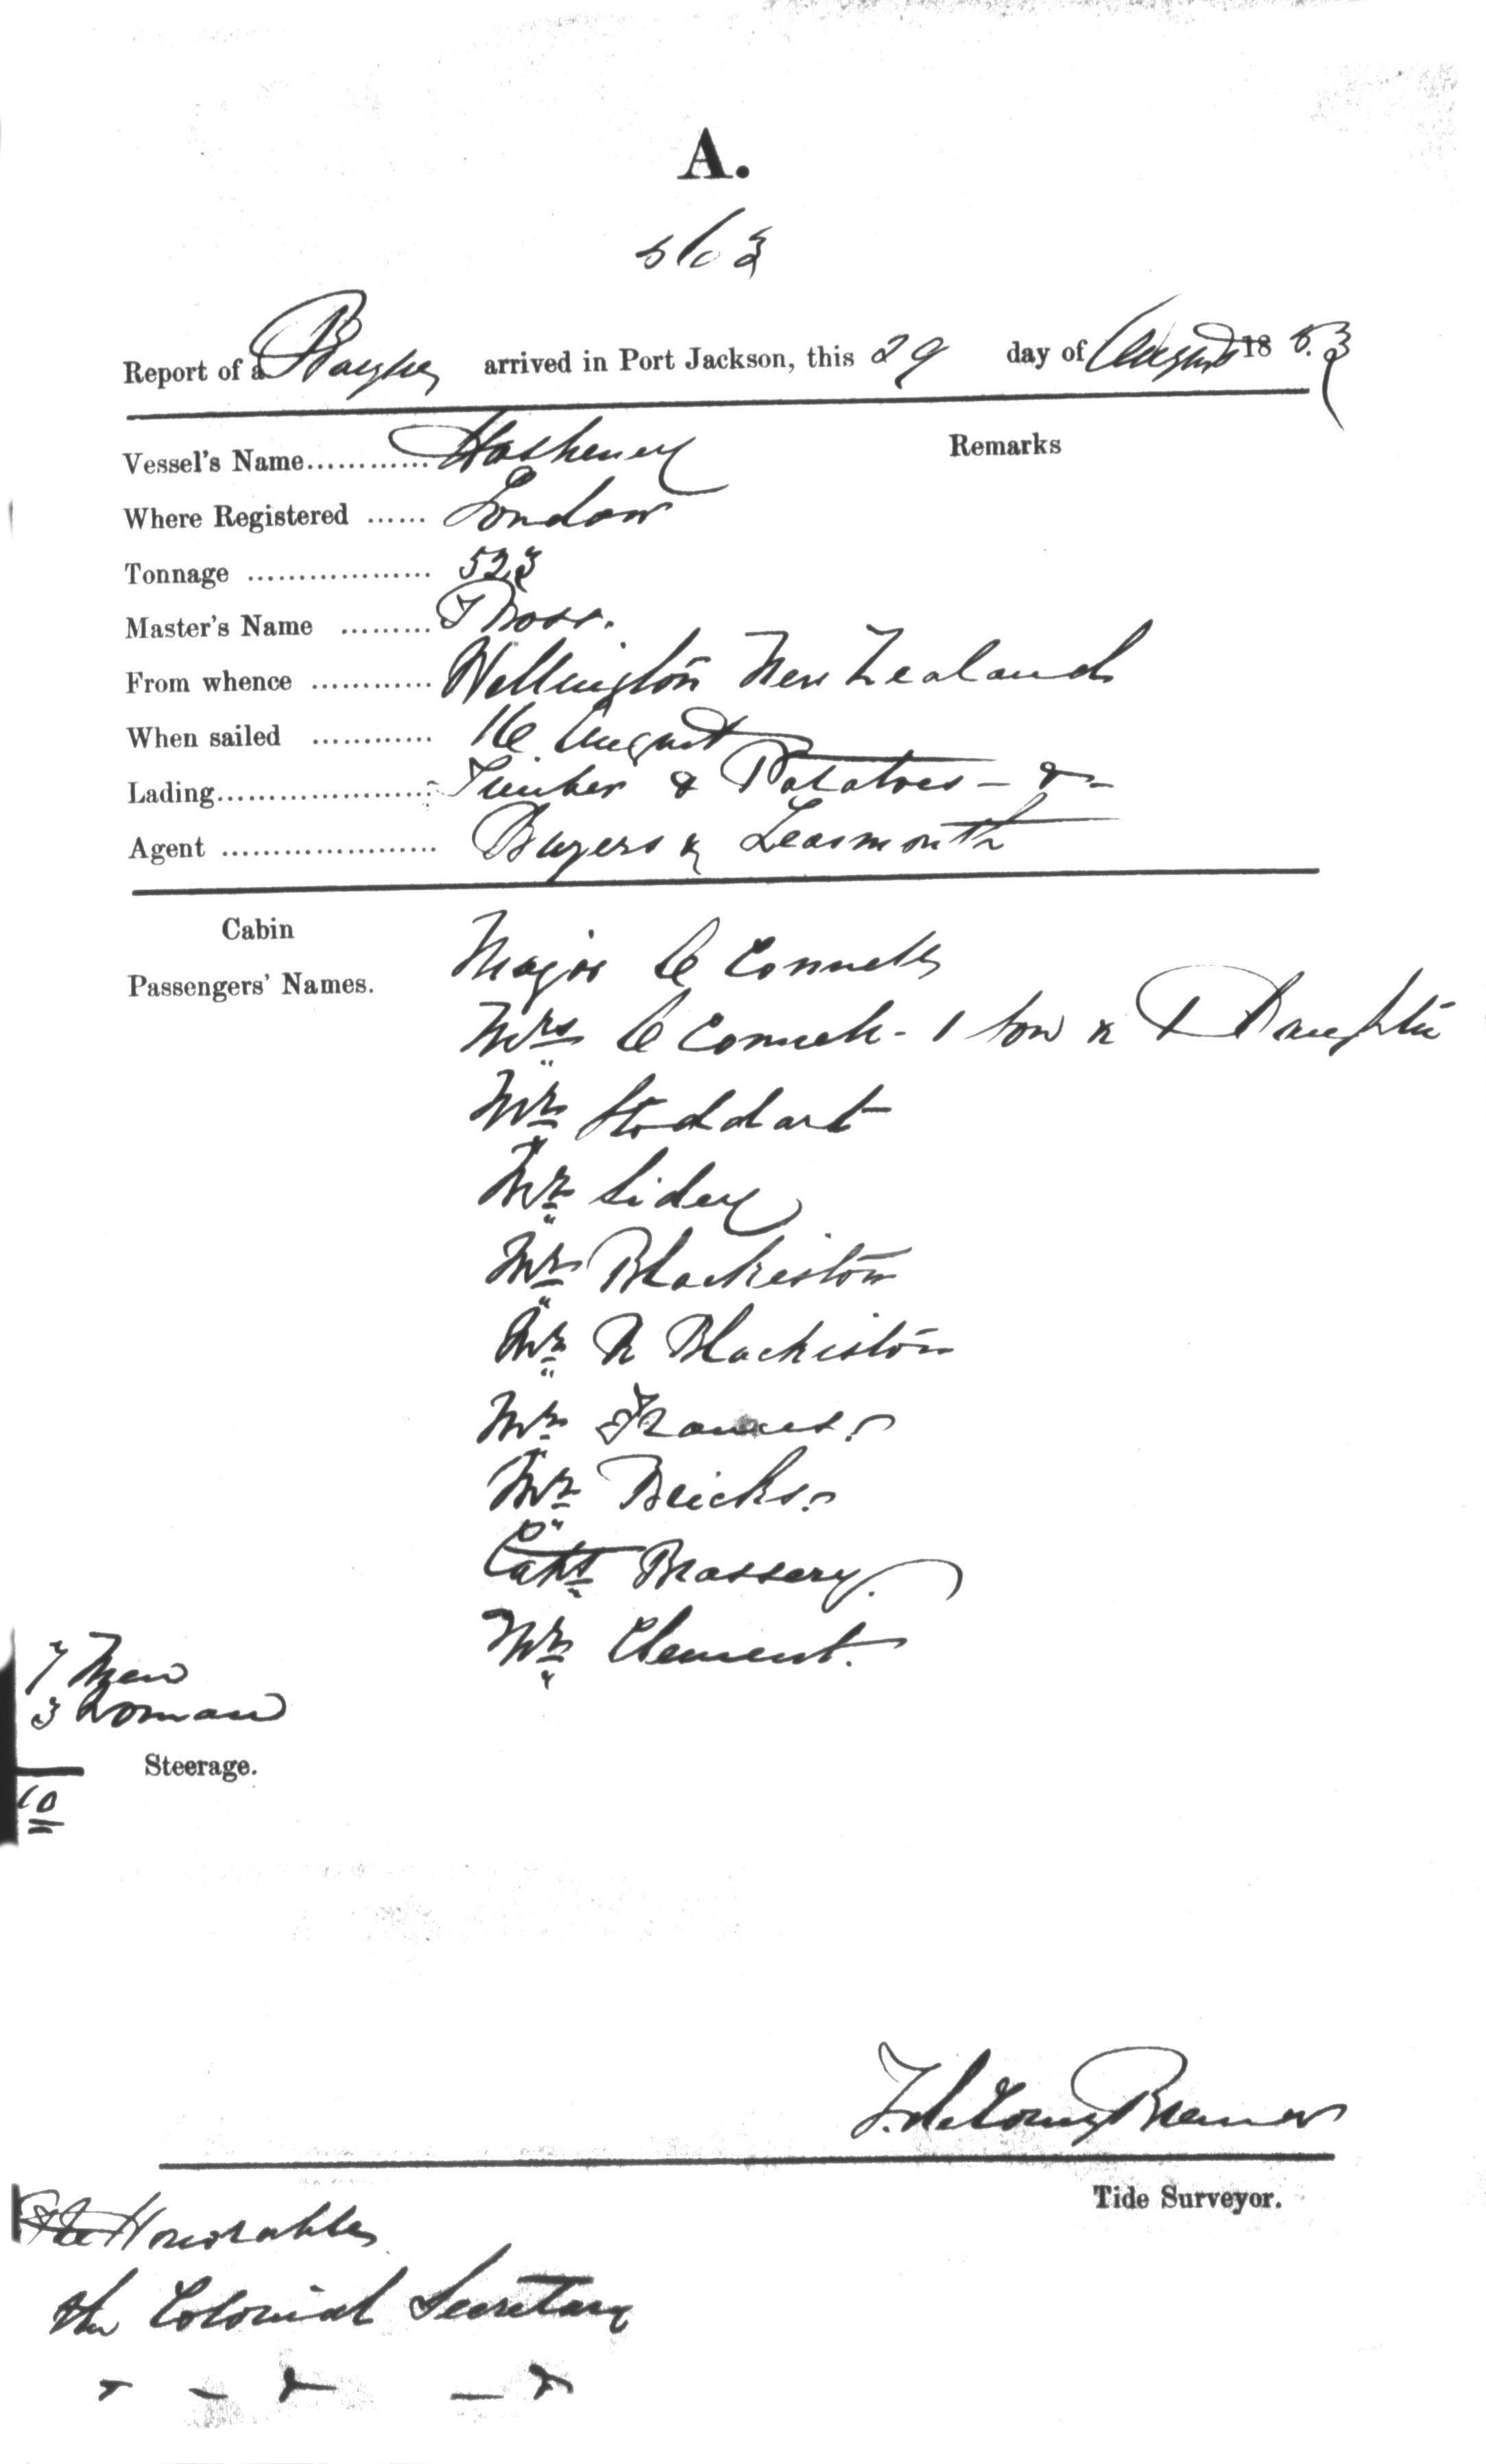 A.
563
Report of a Barque arrived in Port Jackson, this 29 day of August 1853
Vessel's Name............ Hashemy
Remarks
Where Registered ...... London
Tonnage .................. 523
Master's Name ......... Ross.
From whence ............ Wellington New Zealand
When sailed ............ 16 August
Lading..................... Timber & Potatoes - &-
Agent ..................... Buyers & Learmonth
Cabin
Passengers' Names.
Major O'Connell
Mrs O'Connell - 1 Son & 1 Daughter
Mr Stoddart
Mr Sidey
Mr Blackiston
Mr Blackiston
Mr Frances
Mr
Capt
Mr Clement.
7 Men
3 Woman
Steerage.
10
Tide Surveyor.
The Honorable
the Colonial Secretary